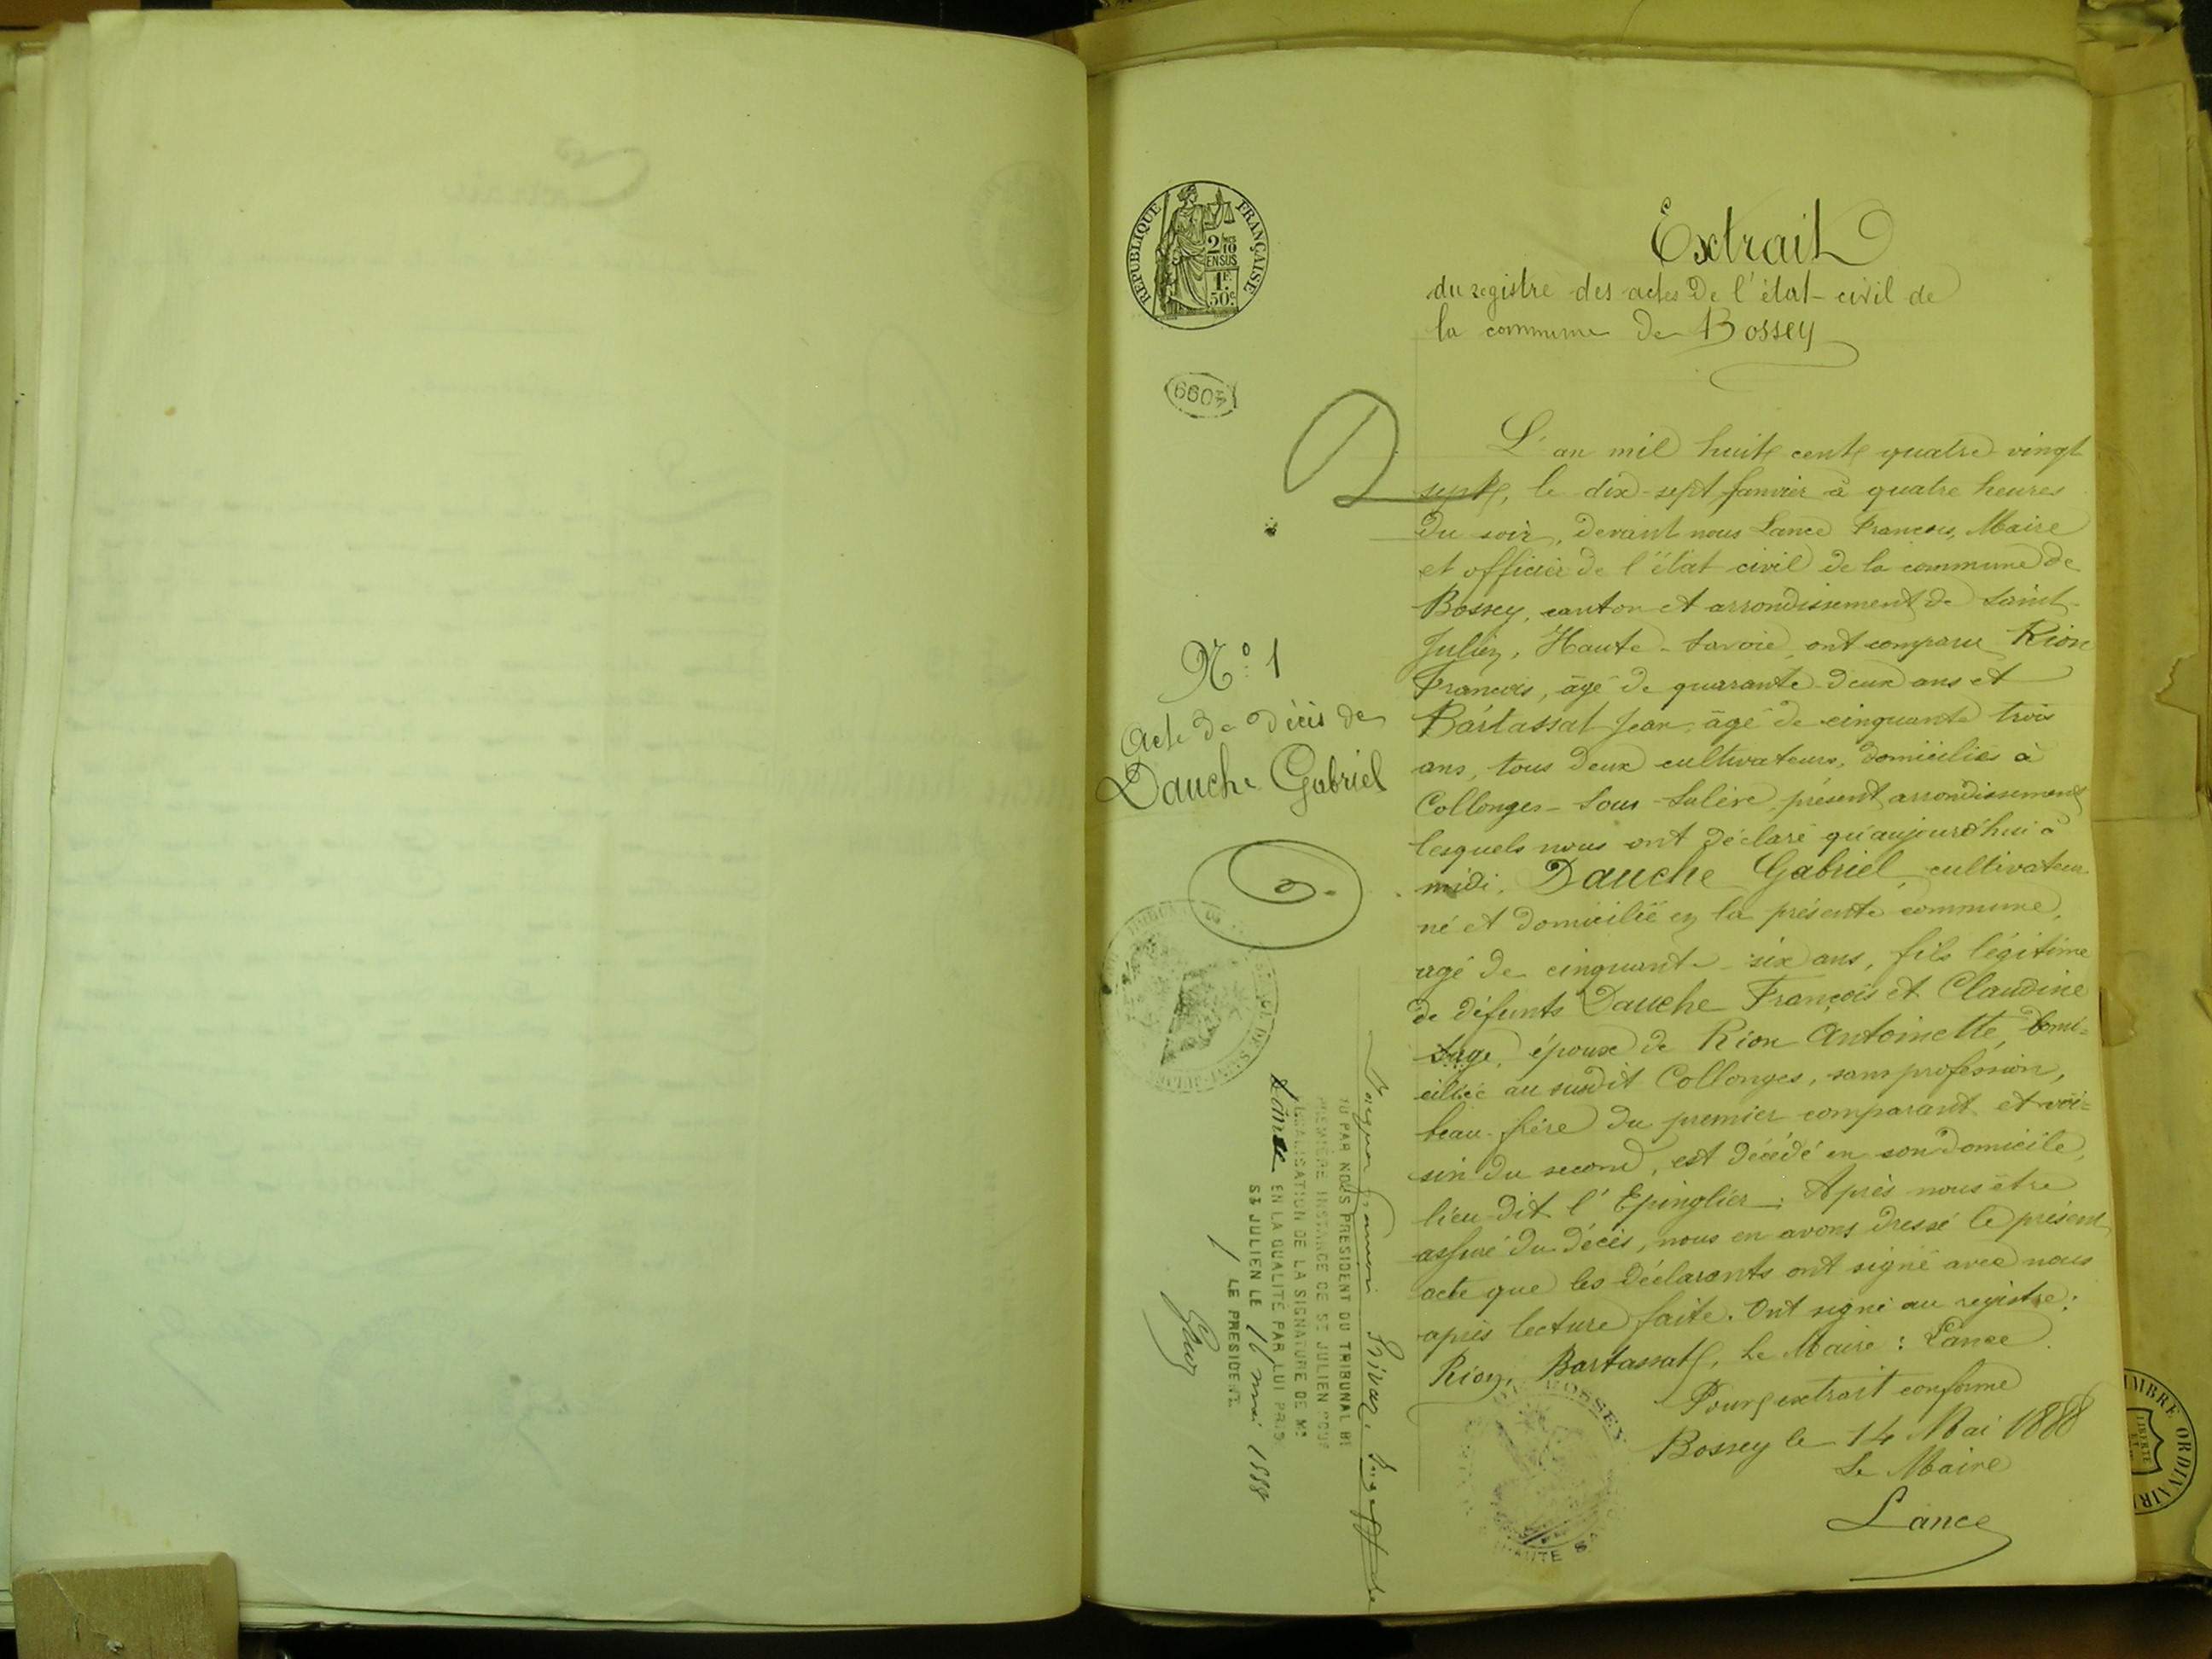 RÉPUBLIQUE FRANÇAISE
2/10 EN SUS
1F.
50c.
Extrait
du registre des actes de l'état-civil de
la commune de Bossey
L'an mil huit cent quatre vingt
sept, le dix-sept janvier à quatre heures
du soir, devant nous Lance François, Maire
et officier de l'état civil de la commune de
Bossey, canton et arrondissement de Saint-
Julien, Haute-Savoie, ont comparu Rion
François, âgé de quarante-deux ans et
Bartassat Jean, âgé de cinquante trois
ans, tous deux cultivateurs, domiciliés à
Collonges-Sous-Salève, présent arrondissement
lesquels nous ont déclaré qu'aujourd'hui à
midi, Dauche Gabriel, cultivateur
né et domicilié en la présente commune,
agé de cinquante-six ans, fils légitime
de défunts Dauche François et Claudine
Sage, époux de Rion Antoinette, domi=
ciliée au susdit Collonges, sans profession,
beau-frère du premier comparant et voi=
sin du second, est décédé en son domicile,
lieu dit l'Epinglier. Après nous être
assuré du décès, nous en avons dressé le présent
acte que les déclarants ont signé avec nous
après lecture faite. Ont signé au registre:
Rion, Bartassat, Le Maire: Lance.
Pour extrait conforme
Bossey le 14 Mai 1888
Le Maire
Lance
N° 1
Acte de décès de
Dauche Gabriel
VU PAR NOUS PRESIDENT DU TRIBUNAL DE
PREMIÈRE INSTANCE DE ST JULIEN POUR
LÉGALISATION DE LA SIGNATURE DE MR
Lance EN LA QUALITÉ PAR LUI PRISE
ST JULIEN LE 16 mai 1888
LE PRESIDENT
BOSSEY
HAUTE
TIMBRE ORDINAIRE
LIBERTÉ